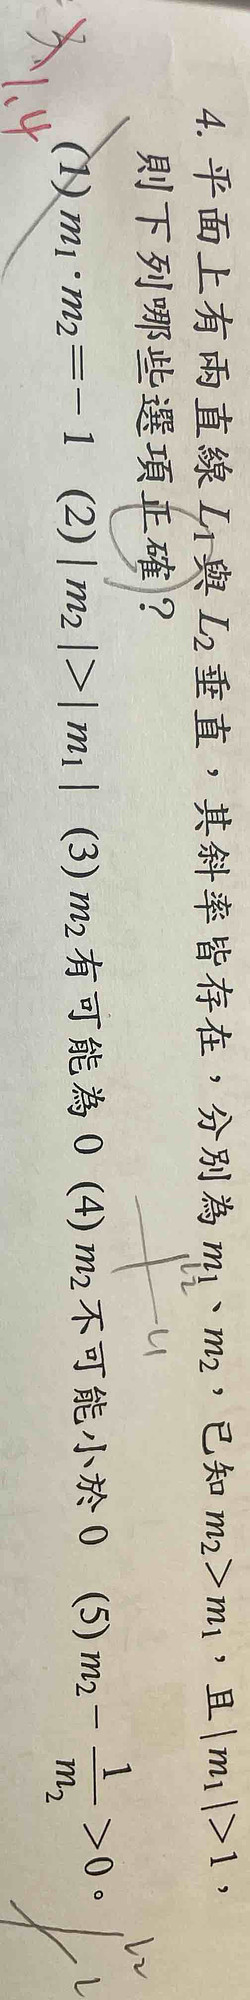 4. 平面上有兩直線 L₁與 L₂ 垂直，其斜率皆存在，分別為 m₁、m₂，已知 m₂>m₁，且|m₁|>1，
則下列哪些選項正確？
(1) m₁·m₂=－1 (2)|m₂|>|m₁| (3) m₂有可能為 0 (4) m₂不可能小於 0 (5) m₂－1/m₂>0。
1.4
L₂
L₁
L₂
L